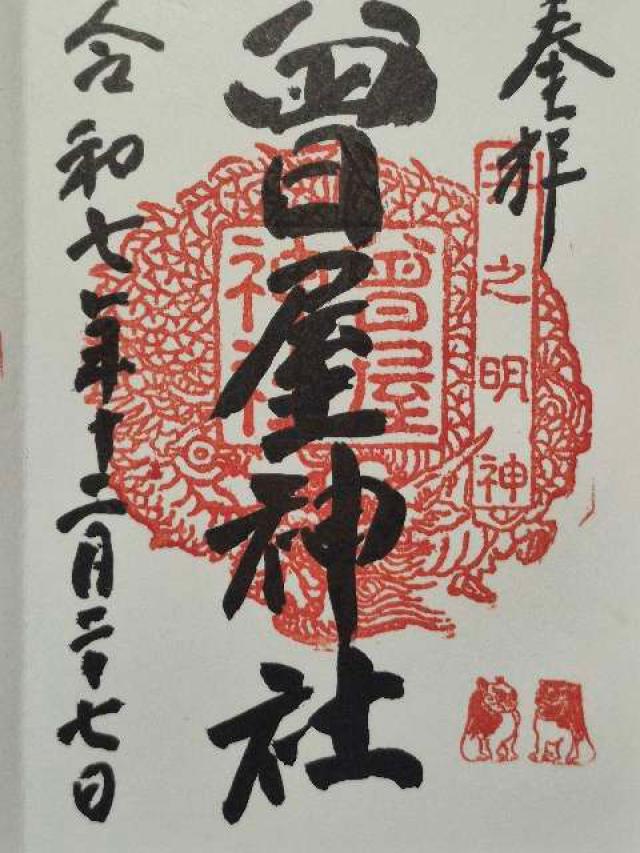 奉拝
井之明神
曽屋神社
曽屋
神社
令和七年十二月二十七日